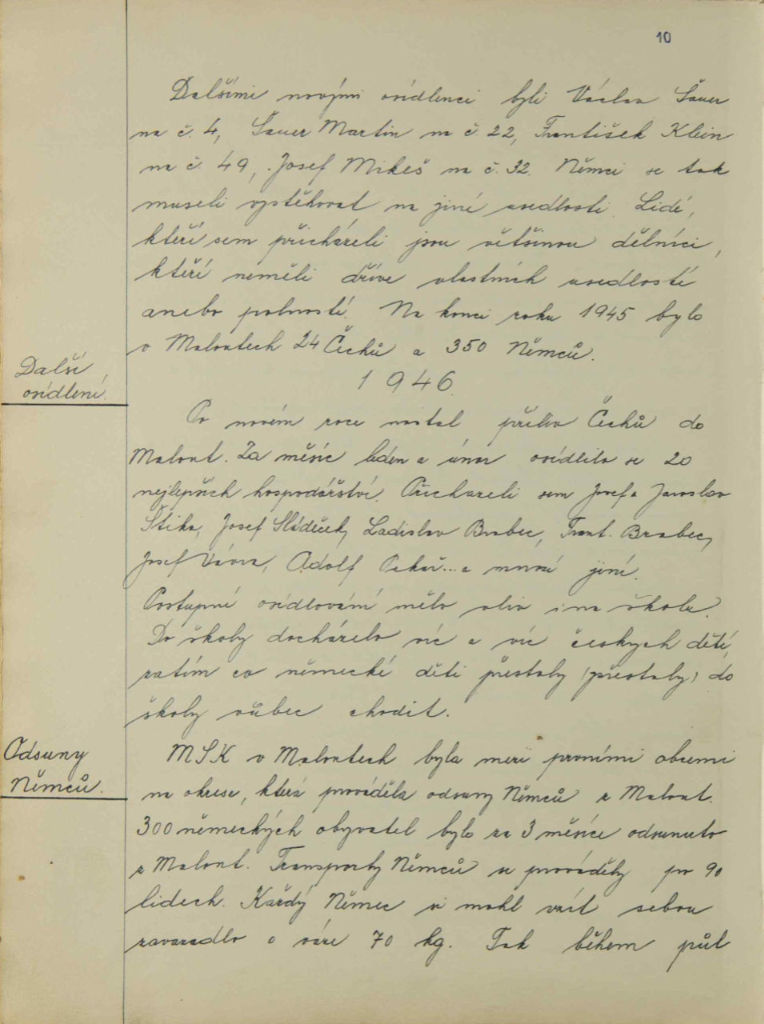 10
Dalšími novými osídlenci byli Václav Šauer
na č. 4, Šauer Martin na č 22, František Klein
na č. 49, Josef Mikeš na č. 32. Němci se tak
museli vystěhovat na jiné usedlosti. Lidé,
kteří sem přicházeli jsou většinou dělníci,
kteří neměli dříve vlastních usedlostí
anebo polností. Na konci roku 1945 bylo
v Malontech 24 Čechů a 350 Němců.
Další
osídlení.
1946.
Po novém roce nastal příliv Čechů do
Malont. Za měsíc leden a únor osídlilo se 20
nejlepších hospodářství. Přicházeli sem Josef a Jaroslav
Štika, Josef Sládeček, Ladislav Brabec, Frant. Brabec,
Josef Vávra, Adolf Pekař... a mnozí jiní.
Postupné osídlování mělo vliv i na školu.
Do školy docházelo víc a víc českých dětí,
zatím co německé děti přestaly (přestaly) do
školy vůbec chodit.
Odsuny
Němců.
MSK v Malontech byla mezi prvními obcemi
na okrese, která prováděla odsuny Němců z Malont.
300 německých obyvatel bylo za 3 měsíce odsunuto
z Malont. Transporty Němců se prováděly po 90
lidech. Každý Němec si mohl vzít sebou
zavazadlo o váze 70 kg. Tak během půl